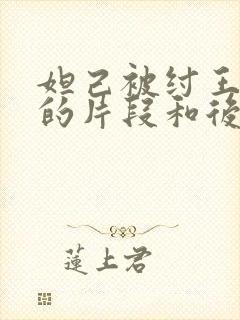 妲己被纣王
的片段和後
蓮上君